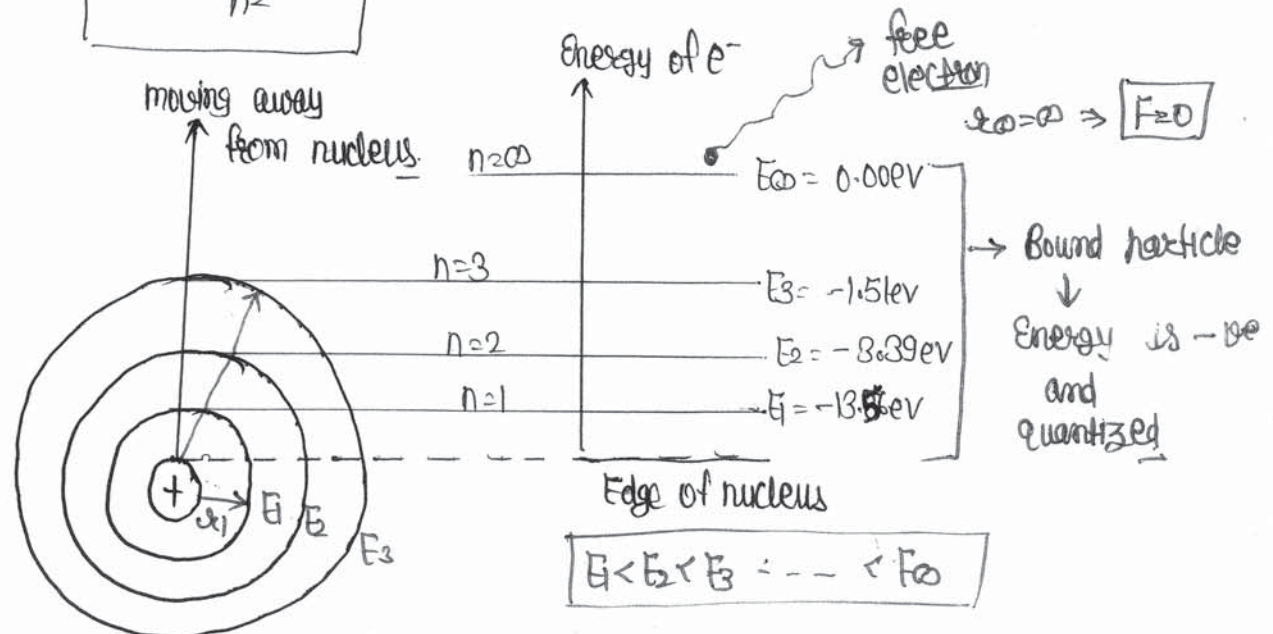 n2
moving away
from nucleus.
Energy of e-
free
electron
r∞=∞ ⇒ F=0
n=∞
E∞ = 0.00ev
n=3
E3= -1.51ev
n=2
E2 = -3.39ev
n=1
E1 = -13.6ev
→ Bound particle
↓
Energy is -ve
and
quantized
+
r1
E1
E2
E3
Edge of nucleus
E1<E2<E3 ---- < E∞